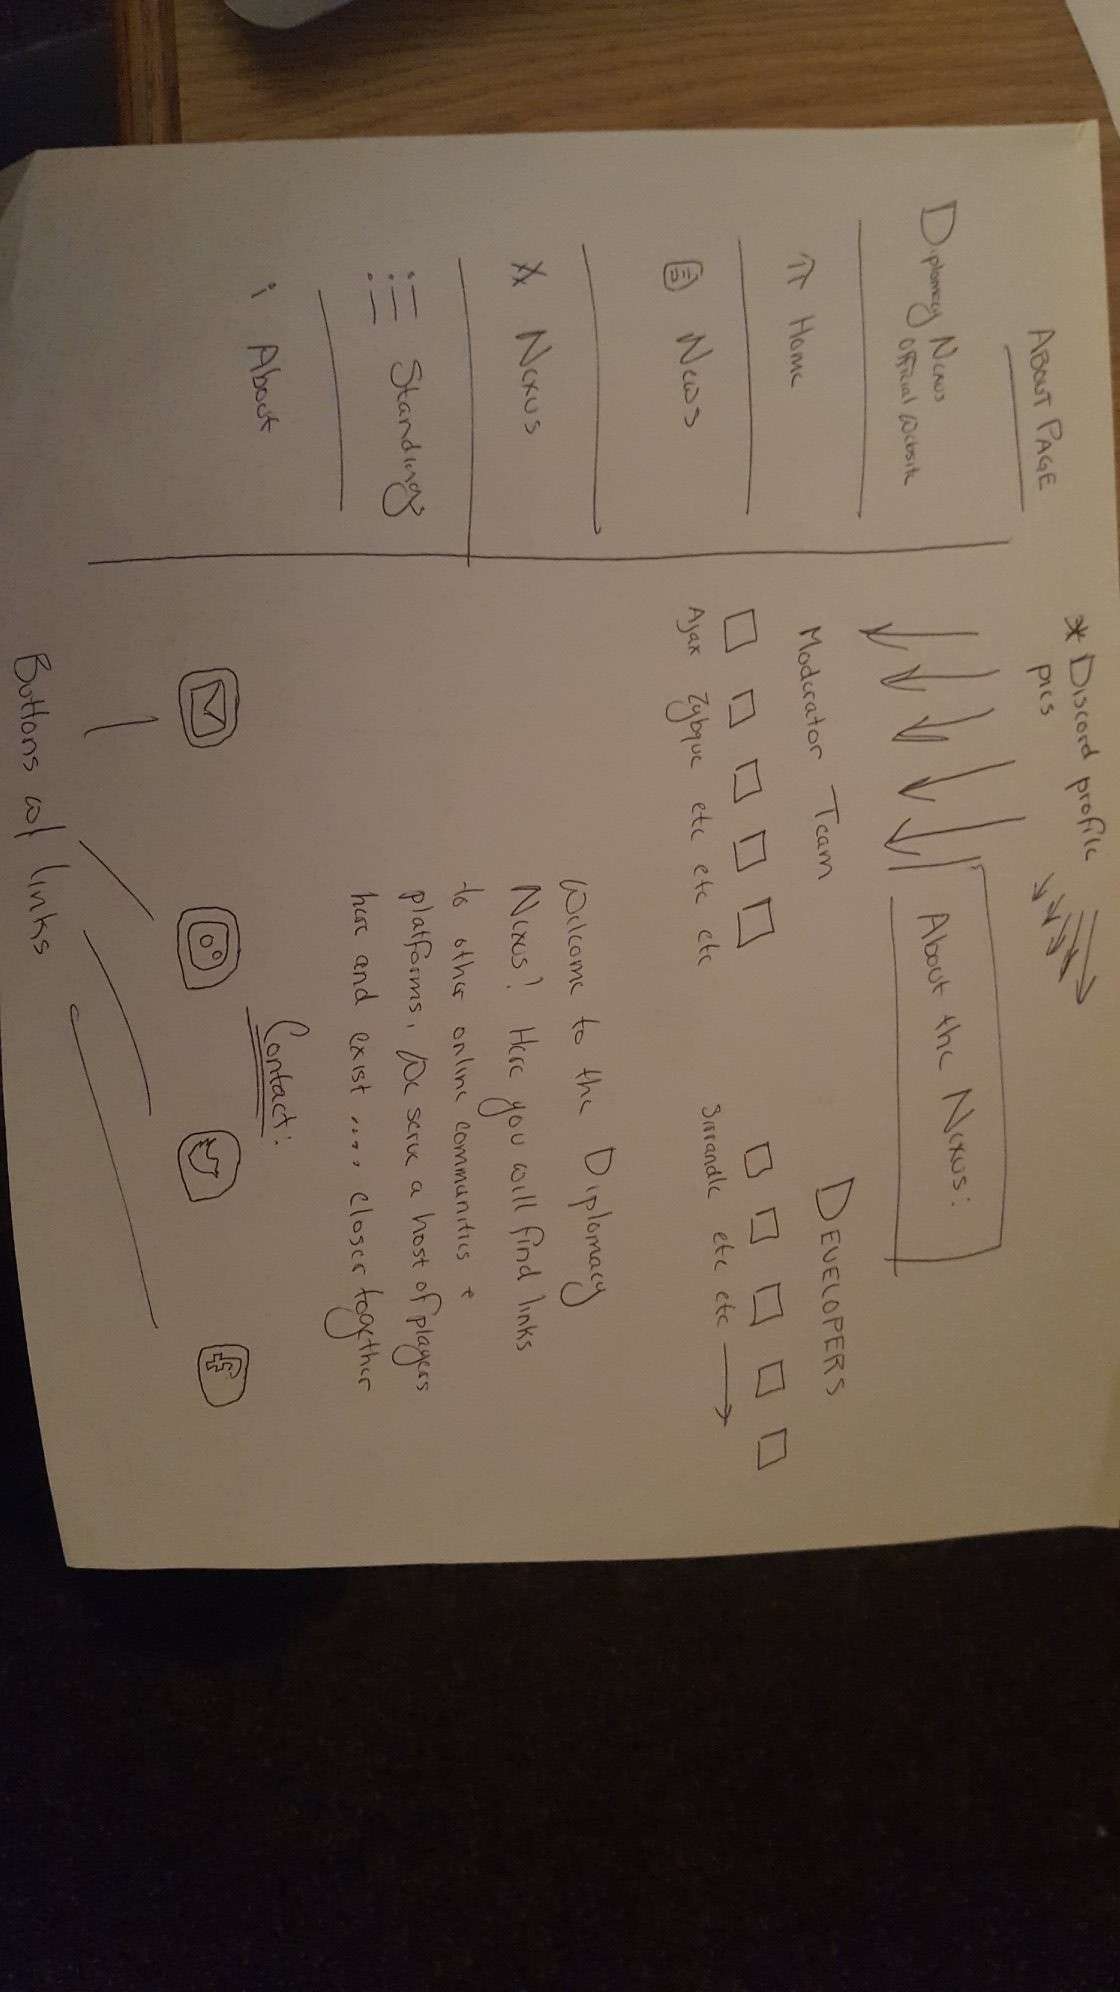 ABOUT PAGE
* Discord profile
pics
Diplomacy Nexus
Official Website
Home
News
Nexus
Standings
i About
About the Nexus:
Moderator Team
Ajax Zybque etc etc etc
DEVELOPERS
Sirrandle etc etc
Welcome to the Diplomacy
Nexus! Here you will find links
to other online communities +
platforms, We serve a host of players
here and exist .... closer together
Contact:
Buttons w/ links